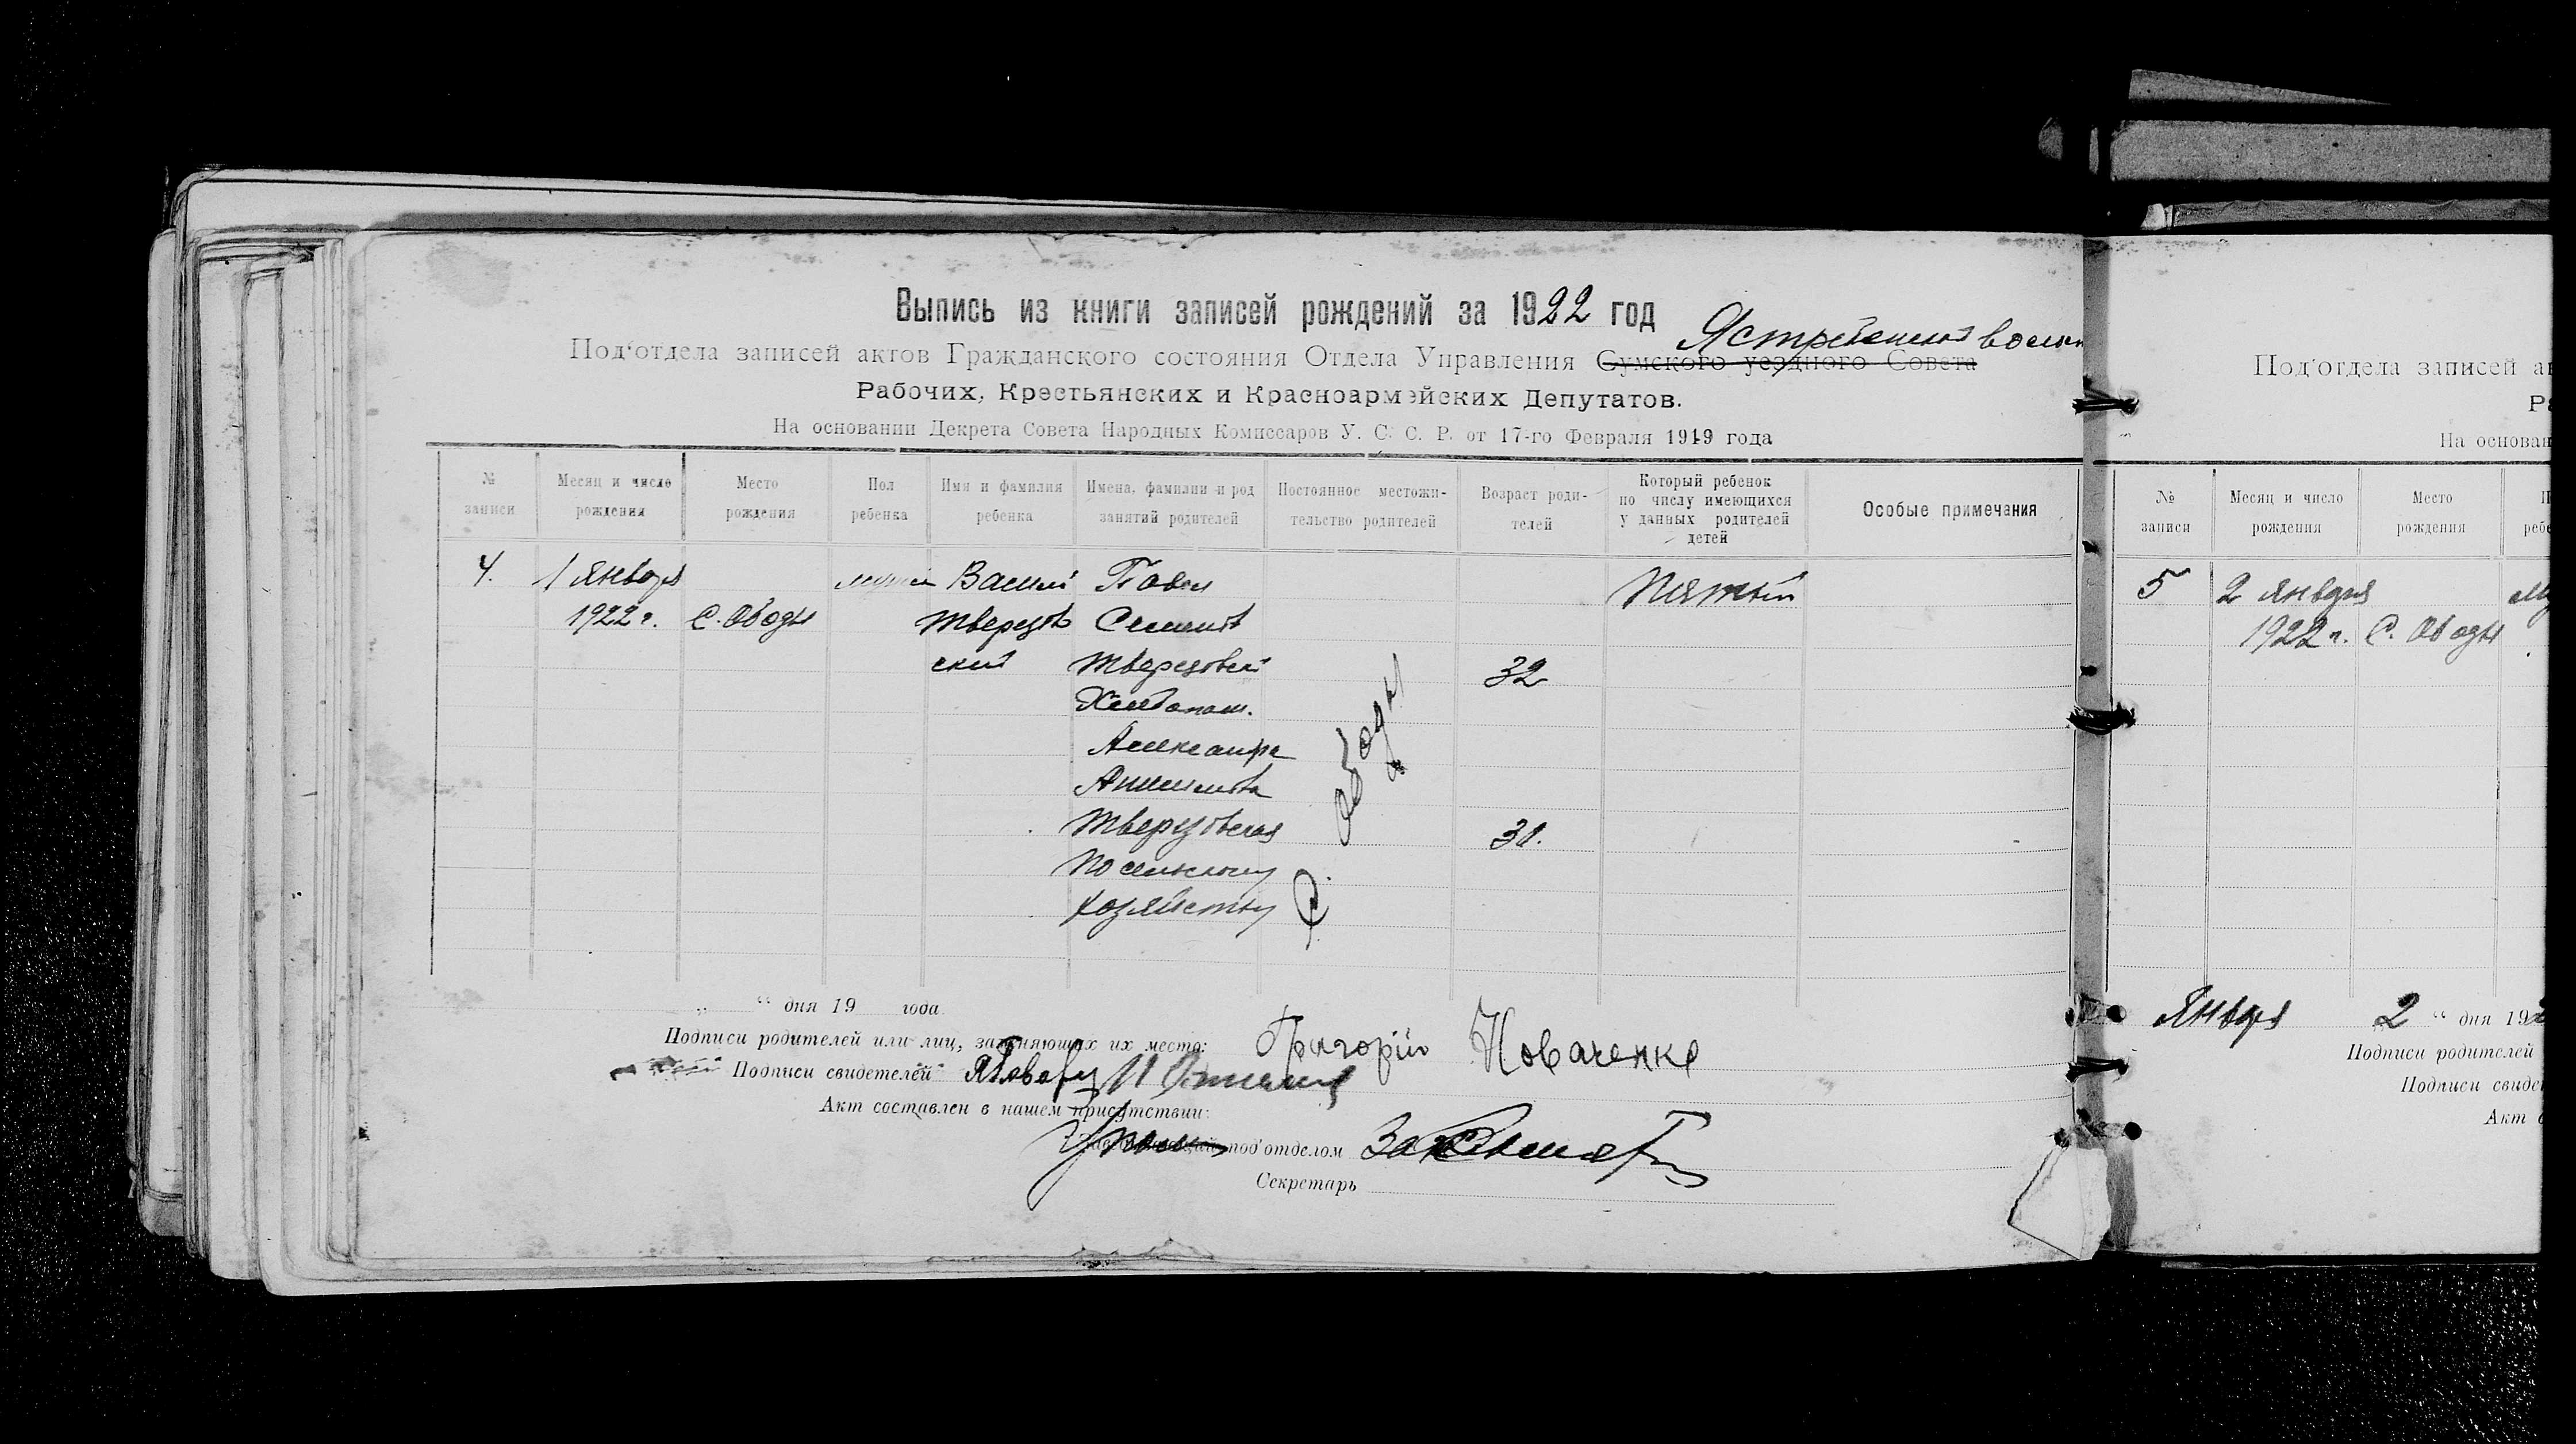 Выпись из книги записей рождений за 1922 год
Под'отдела записей актов Гражданского состояния Отдела Управления Сумского уездного Совета
Рабочих, Крестьянских и Красноармейских Депутатов.
На основании Декрета Совета Народных Комиссаров У. С. С. Р. от 17-го Февраля 1919 года
№ записи
Месяц и число рождения
Место рождения
Пол ребенка
Имя и фамилия ребенка
Имена, фамилии и род занятий родителей
Постоянное местожительство родителей
Возраст родителей
Который ребенок по числу имеющихся у данных родителей детей
Особые примечания
4. 1 Января Павел Пятый
1922 г. С. Ободы Тверезов
ский Тверезовский 32
Хлебопаш.
Александра
Тверезовская 31.
По сельскому
хозяйству
С. Ободы
„ “ дня 19 года.
Подписи родителей или лиц, заменяющих их место: Григорій
Подписи свидетелей
Акт составлен в нашем присутствии:
под'отделом
Секретарь
Под'отдела записей
На основан
№ записи
Месяц и число рождения
Место рождения
5 2 Января
1922 г. С. Ободы
Января 2 “ дня 19
Подписи родителей
Подписи свиде
Акт